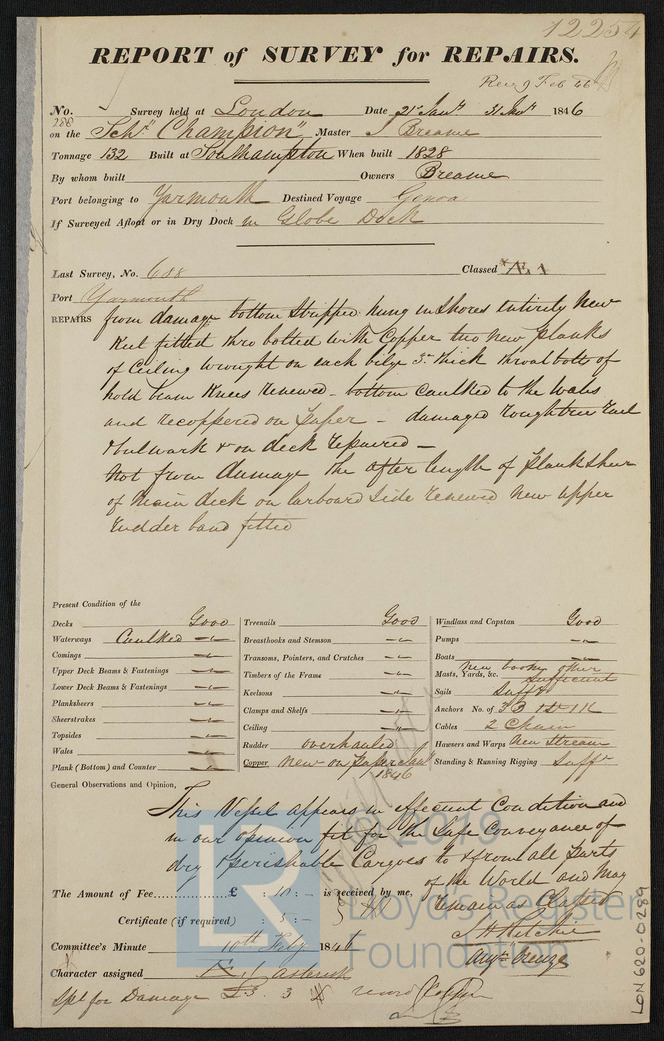 12254
REPORT of SURVEY for REPAIRS.
Rec 9 Feb 46
No. 288 Survey held at London Date 21st Jany 31 Jany 1846
on the Schr "Champion" Master J Breame
Tonnage 132 Built at Southampton When built 1828
By whom built Owners Breame
Port belonging to Yarmouth Destined Voyage Genoa
If Surveyed Afloat or in Dry Dock in Globe Dock
Last Survey, No. 688 Classed *Æ 1
Port Yarmouth
REPAIRS from damage bottom stripped hung in Shores entirely New
Keel fitted thro bolted with Copper two new planks
of Ceiling wrought on each bilge 3 thick throat bolts of
hold beam Knees renewed - bottom caulked to the Wales
and recoppered on paper - damaged roughtree rail
& bulwark & on deck repaired -
Not from damage the after length of Planksheer
of Main deck on larboard side renewed New Upper
Rudder band fitted
Present Condition of the
Decks Good
Waterways Caulked
Comings
Upper Deck Beams & Fastenings
Lower Deck Beams & Fastenings
Planksheers
Sheerstrakes
Topsides
Wales
Plank (Bottom) and Counter
Treenails Good
Breasthooks and Stemson
Transoms, Pointers, and Crutches
Timbers of the Frame
Keelsons
Clamps and Shelfs
Ceiling
Rudder overhauled
Copper New on paper Jany 1846
Windlass and Capstan Good
Pumps
Boats
Masts, Yards, &c. New other sufficient
Sails Sufft
Anchors No. of 3B 1S 1K
Cables 2 Chain
Hawsers and Warps New Stream
Standing & Running Rigging Sufft
General Observations and Opinion,
This Vessel appears in efficient Condition and
in our opinion fit for the Safe Conveyance of
dry & perishable Cargoes to & from all parts
of the World and May
remain as Classed
The Amount of Fee £ : 10 : - is received by me,
Certificate (if required) : 5 : -
Committee's Minute 10th Feby 1846
Character assigned asterisk
Spl for Damage £3. 3
© 2019
Lloyd's Register
Foundation
LR
LON620-0289